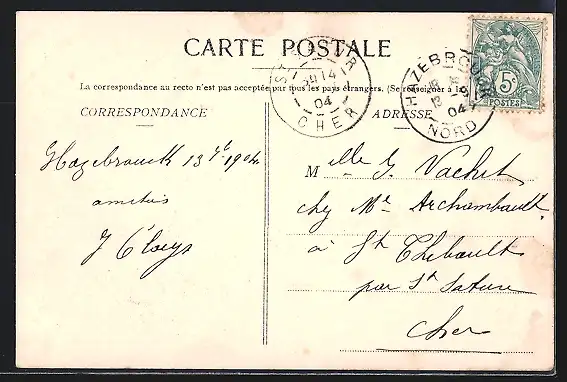 CARTE POSTALE
La correspondance au recto n'est pas acceptée par tous les pays étrangers. (Se renseigner à la
CORRESPONDANCE
ADRESSE
HAZEBROUCK
04
NORD
14
04
CHER
5c
POSTES
Hazebrouck 13 1904
amitiés
Melle G. Vachet
chez Mr Archambault
à St Thibault
par St Satur
Cher